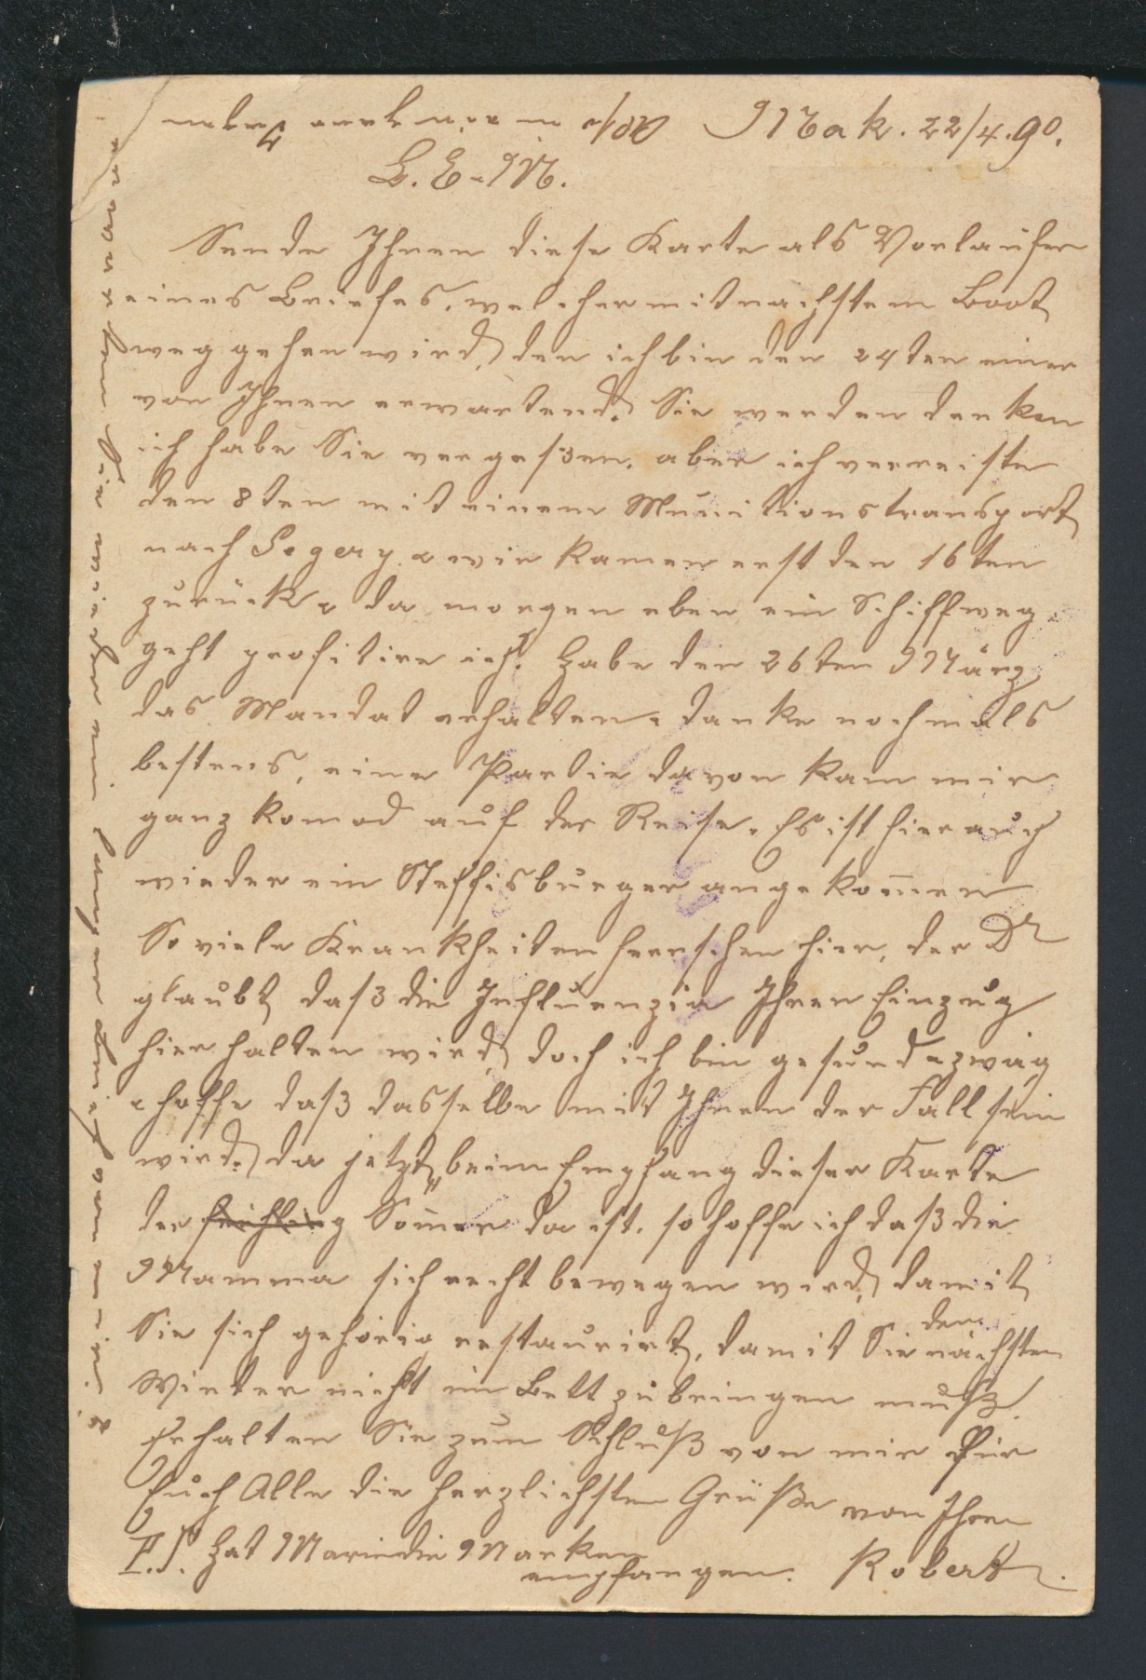 Mak. 22/4.90.
L. E-M.
Sende Ihnen diese Karte als Vorläufer
eines Briefes, welcher mit nächstem Boot
weg gehen wird, den ich bin den 24ten einer
von Ihnen erwartend. Sie werden denken
ich habe Sie vergeßen. aber ich verreiste
den 8ten mit einem Munitionstransport
nach Segery. & wir kamen erst den 16ten
zurück & da morgen eben ein Schiff weg
geht profitire ich. Habe den 26ten März
das Mandat erhalten. danke nochmals
bestens, eine Partie davon kam mir
ganz komod auf der Reise. Es ist hier auch
wieder ein Steffisburger angekommen
So viele Krankheiten herrschen hier, der Dr
glaubt daß die Influenzia Ihren Einzug
hier halten wird, doch ich bin gesund & zwäg
& hoffe daß dasselbe mit Ihnen der Fall sein
wird. da jetzt, beim Empfang dieser Karte
der frühling Sommer da ist. so hoffe ich daß die
Mamma sich recht bewegen wird, damit
Sie sich gehörig restaurirt, damit Sie den nächsten
Winter nicht im Bett zubringen muß.
Erhalten Sie zum Schluß von mir für
Euch Alle die herzlichsten Grüße von Ihrem
Robert.
P.S. Hat Marie die Marken
empfangen.